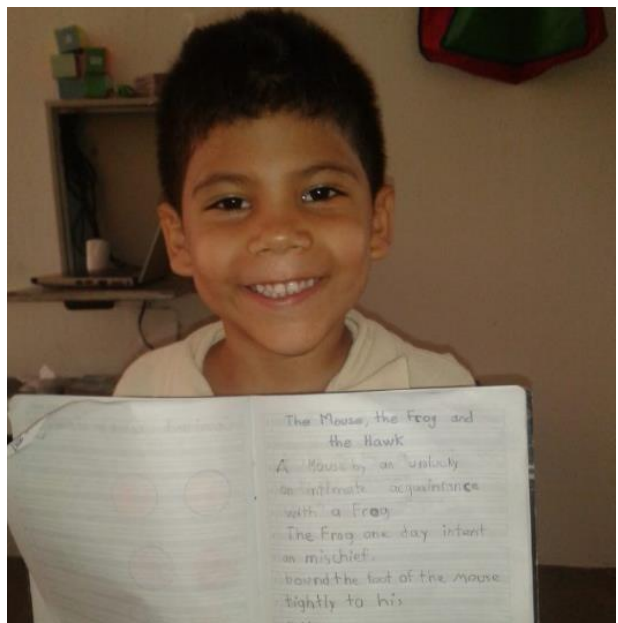 The Mouse, the Frog and
the Hawk
A Mouse by an unlucky
an intimate acquaintance
with a Frog
The Frog one day intent
on mischief.
bound the foot of the mouse
tightly to his